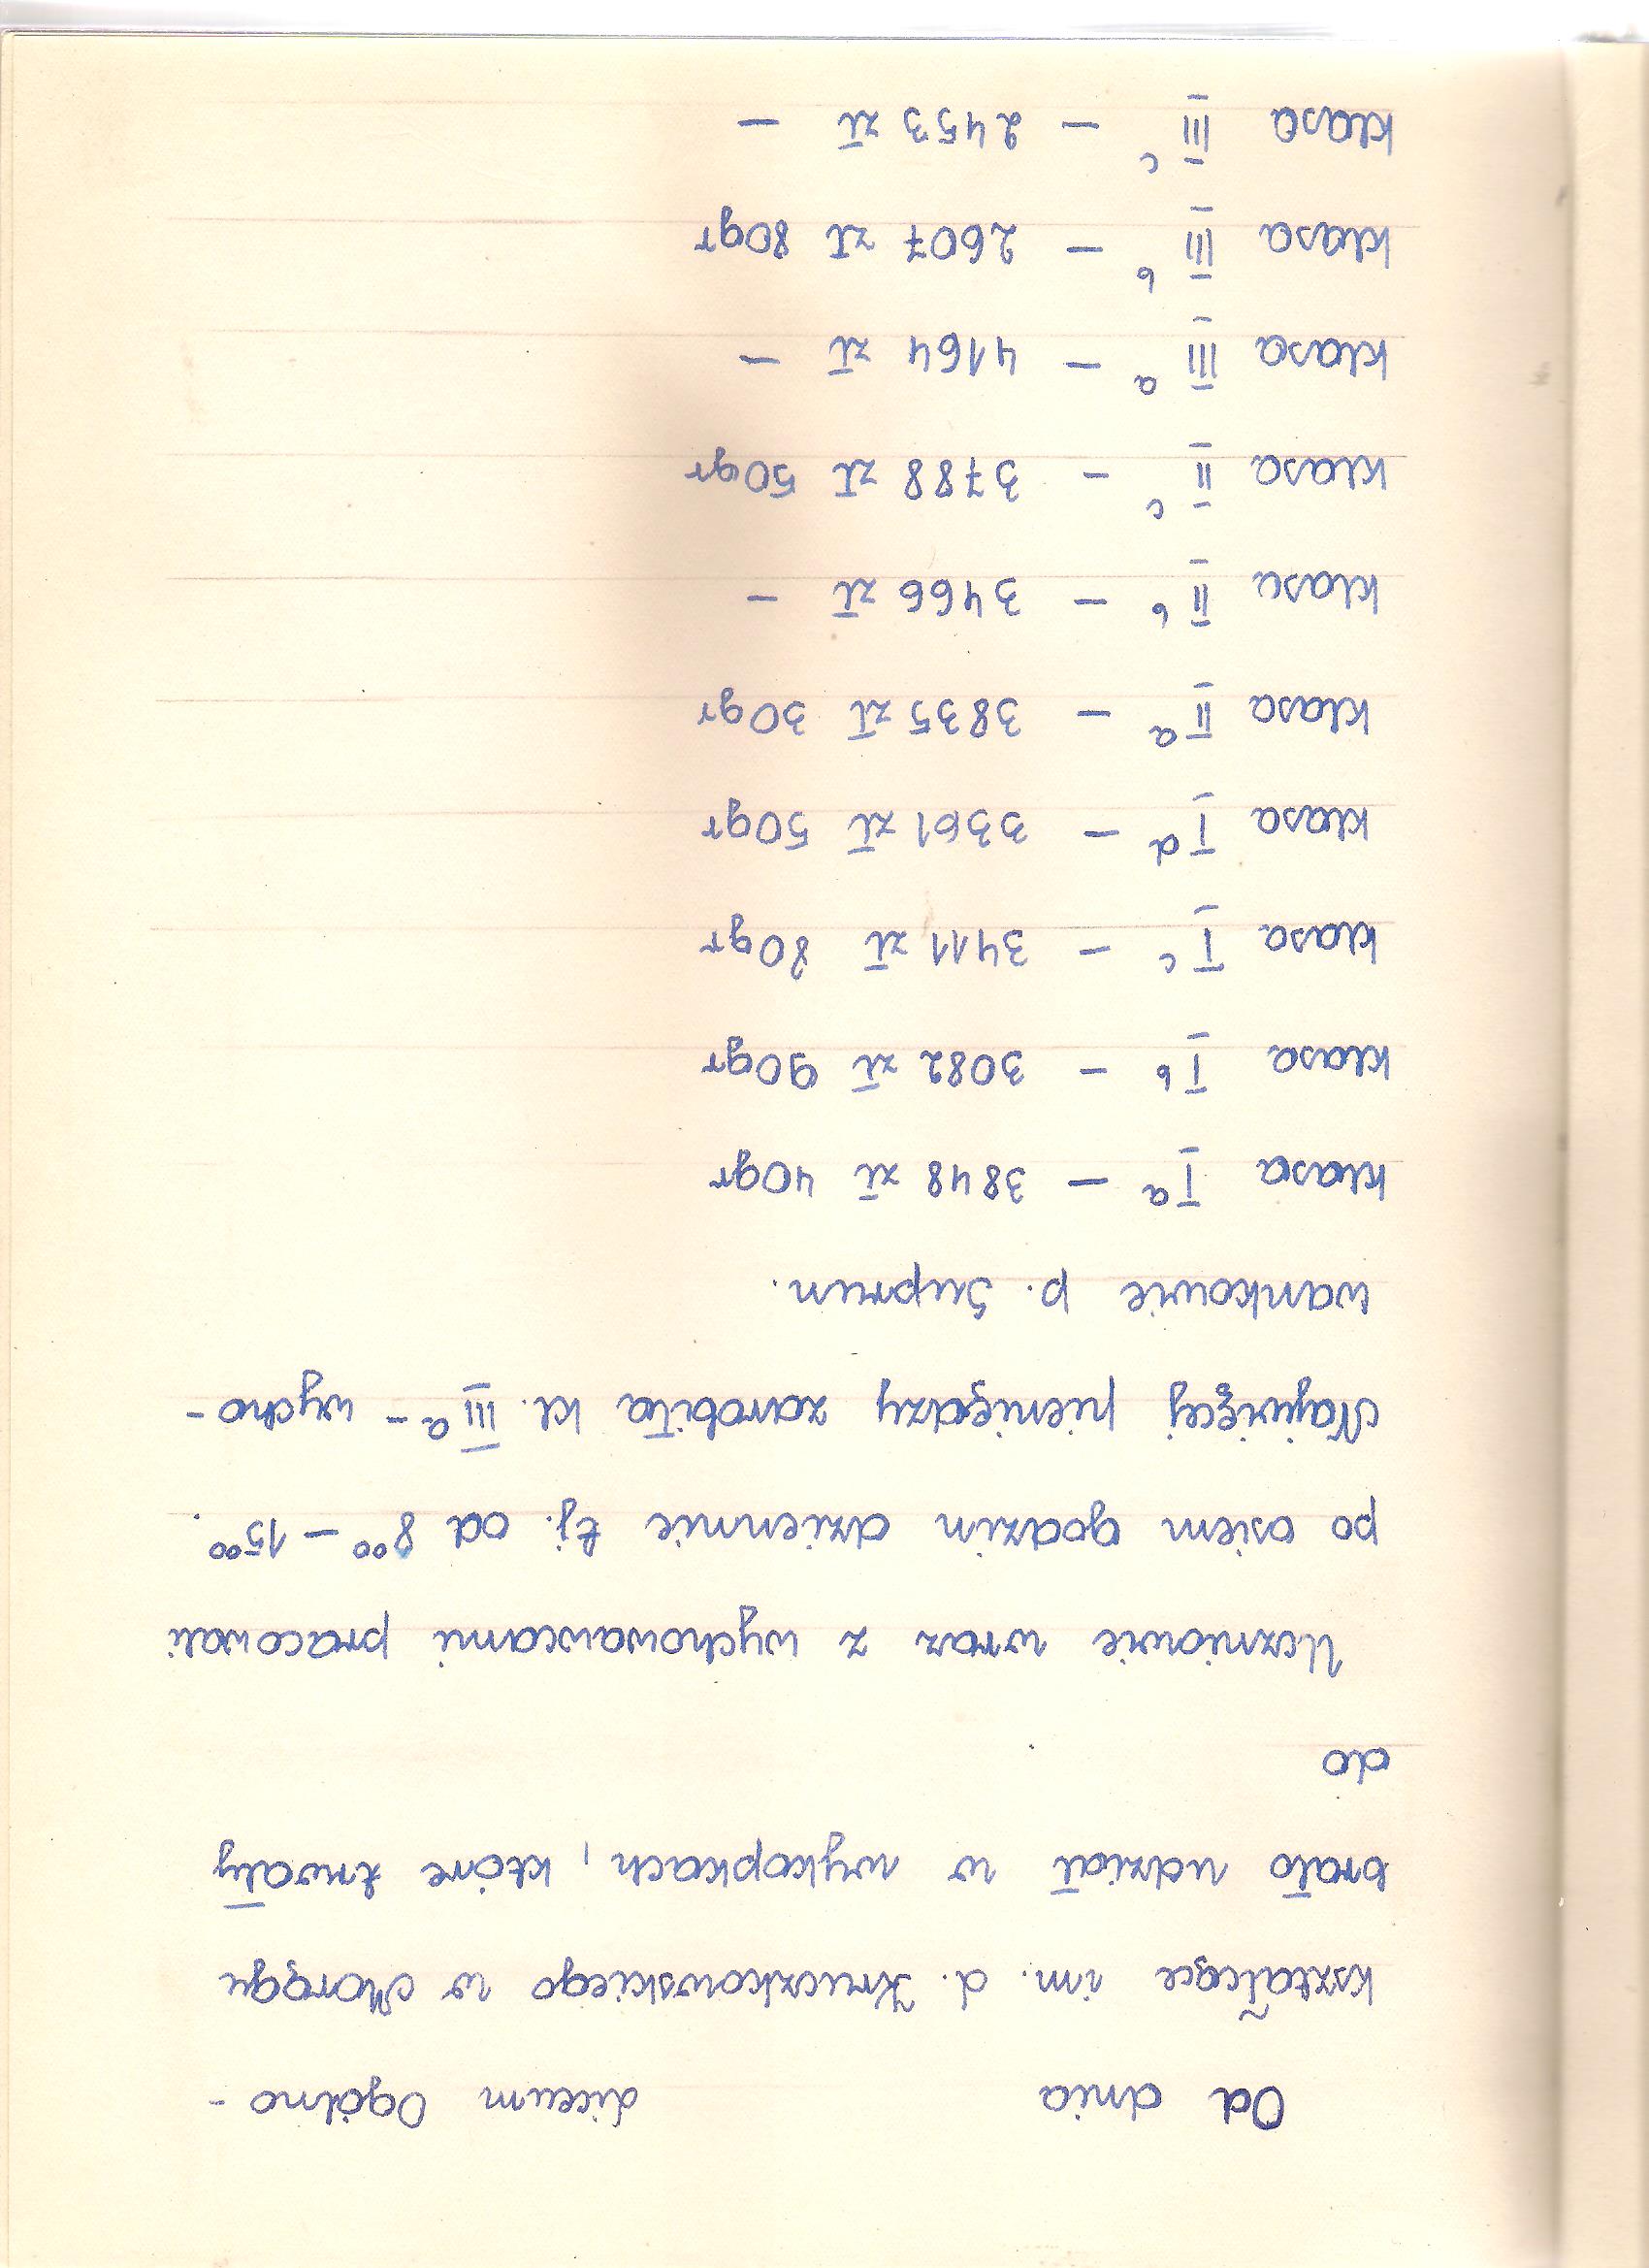 Od dnia Liceum Ogólno-
kształcące im. L. Kruczkowskiego w Morągu
brało udział w wykopkach, które trwały
do
Uczniowie wraz z wychowawcami pracowali
po osiem godzin dziennie tj. od 8⁰⁰ – 15⁰⁰.
Najwięcej pieniędzy zarobiła kl. IIIa – wycho-
wankowie p. Suprun.
klasa Ia – 3848 zł 40gr
klasa Ib – 3082 zł 90gr
klasa Ic – 3411 zł 80gr
klasa Id – 3361 zł 50gr
klasa IIa – 3835 zł 30gr
klasa IIb – 3466 zł –
klasa IIc – 3788 zł 50gr
klasa IIIa – 4164 zł –
klasa IIIb – 2607 zł 80gr
klasa IIIc – 2453 zł –